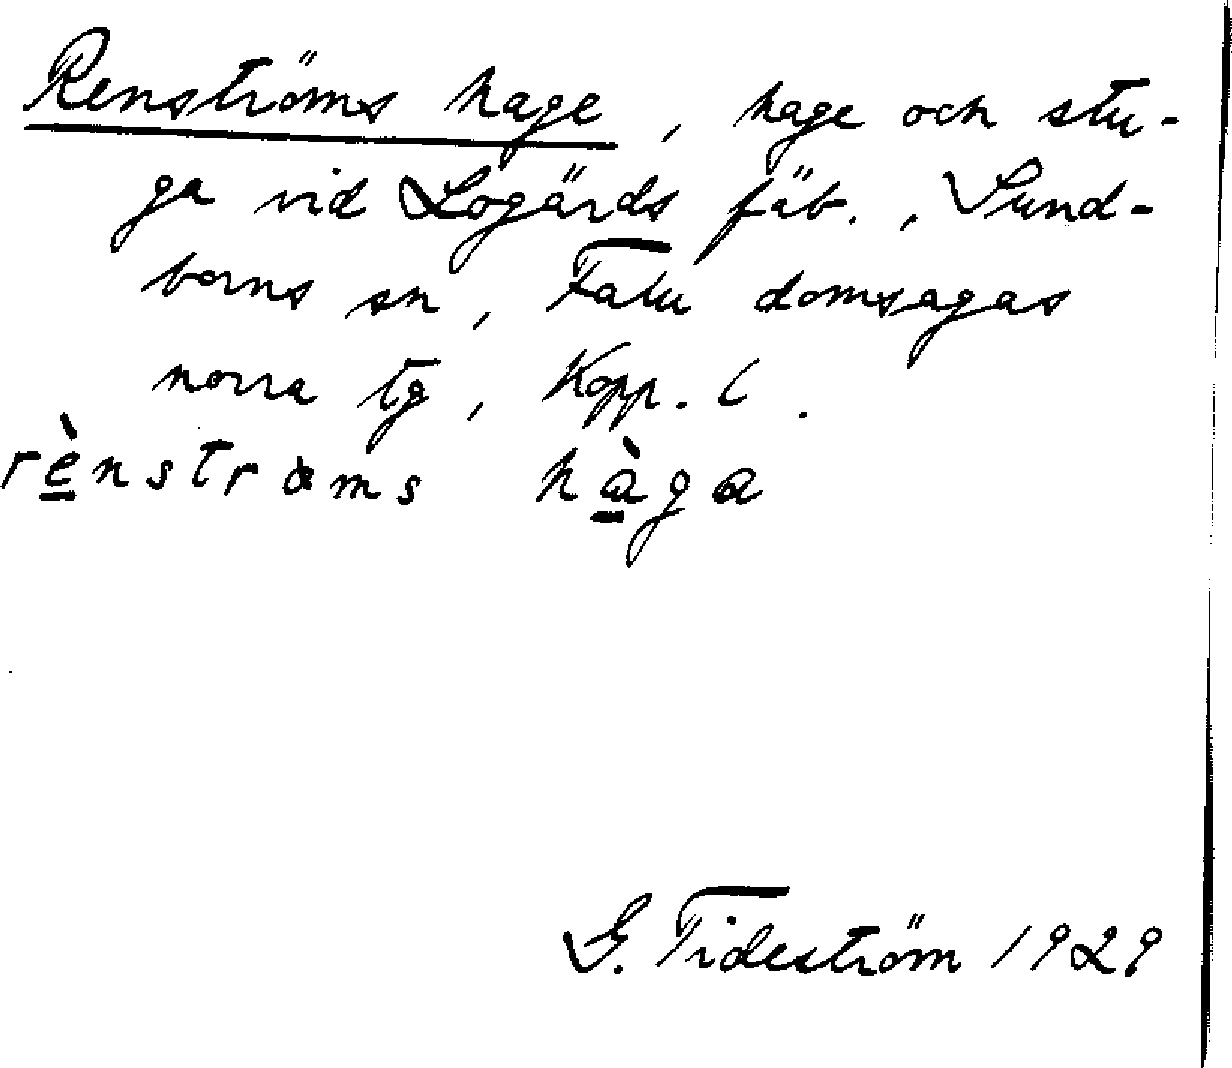 Renströms hage, hage och stu-
ga vid Logärds fäb., Sund-
borns sn, Falu domsagas
norra tg, Kopp. l.
rènstrøms hàga
G. Tideström 1929